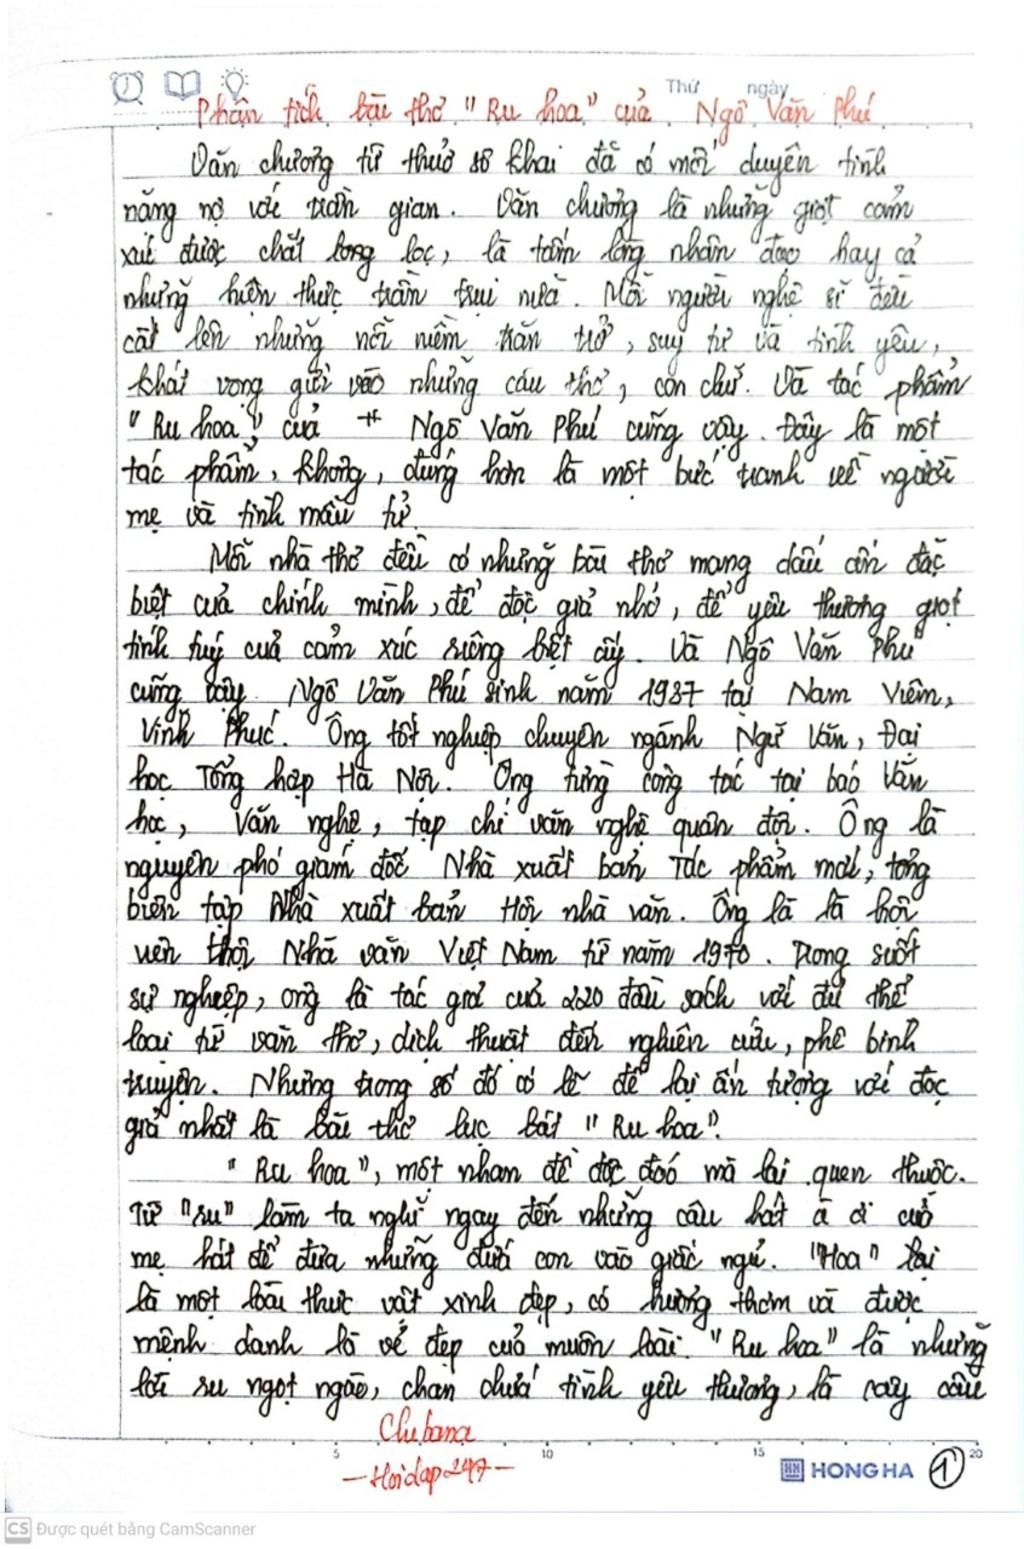 Thứ ngày
Phân tích bài thơ "Ru hoa" của Ngô Văn Phú
Văn chương từ thuở sơ khai đã có mối duyên tình
nặng nợ với trần gian. Văn chương là những giọt cảm
xúc được chắt lọng lọc, là tấm lòng nhân đạo hay cả
những hiện thực trần trụi nữa. Mỗi người nghệ sĩ đều
cất lên những nỗi niềm trăn trở, suy tư và tình yêu,
khát vọng gửi vào những câu thơ, con chữ. Và tác phẩm
"Ru hoa" của Ngô Văn Phú cũng vậy. Đây là một
tác phẩm, không, đúng hơn là một bức tranh về người
mẹ và tình mẫu tử.
Mỗi nhà thơ đều có những bài thơ mang dấu ấn đặc
biệt của chính mình, để độc giả nhớ, để yêu thương giọt
tinh túy của cảm xúc riêng biệt ấy. Và Ngô Văn Phú
cũng vậy. Ngô Văn Phú sinh năm 1937 tại Nam Viêm,
Vĩnh Phúc. Ông tốt nghiệp chuyên ngành Ngữ Văn, Đại
học Tổng hợp Hà Nội. Ông từng công tác tại báo Văn
học, Văn nghệ, tạp chí văn nghệ quân đội. Ông là
nguyên phó giám đốc Nhà xuất bản Tác phẩm mới, tổng
biên tập Nhà xuất bản Hội nhà văn. Ông là là hội
viên Hội Nhà văn Việt Nam từ năm 1970. Trong suốt
sự nghiệp, ông là tác giả của 220 đầu sách với đủ thể
loại từ văn thơ, dịch thuật đến nghiên cứu, phê bình
truyện. Nhưng trong số đó có lẽ để lại ấn tượng với đọc
giả nhất là bài thơ lục bát "Ru hoa".
"Ru hoa", một nhan đề độc đoó mà lại quen thuộc.
Từ "ru" làm ta nghĩ ngay đến những câu hát à ơi cuả
mẹ hát để đưa những đứa con vào giấc ngủ. "Hoa" lại
là một loài thực vật xinh đẹp, có hương thơm và được
mệnh danh là vẻ đẹp của muôn loài. "Ru hoa" là những
lời ru ngọt ngào, chan chứa tình yêu thương, là câu
Clubana
-Hoidap247-
5 10 15 20
HH HONG HA 1
CS Được quét bằng CamScanner